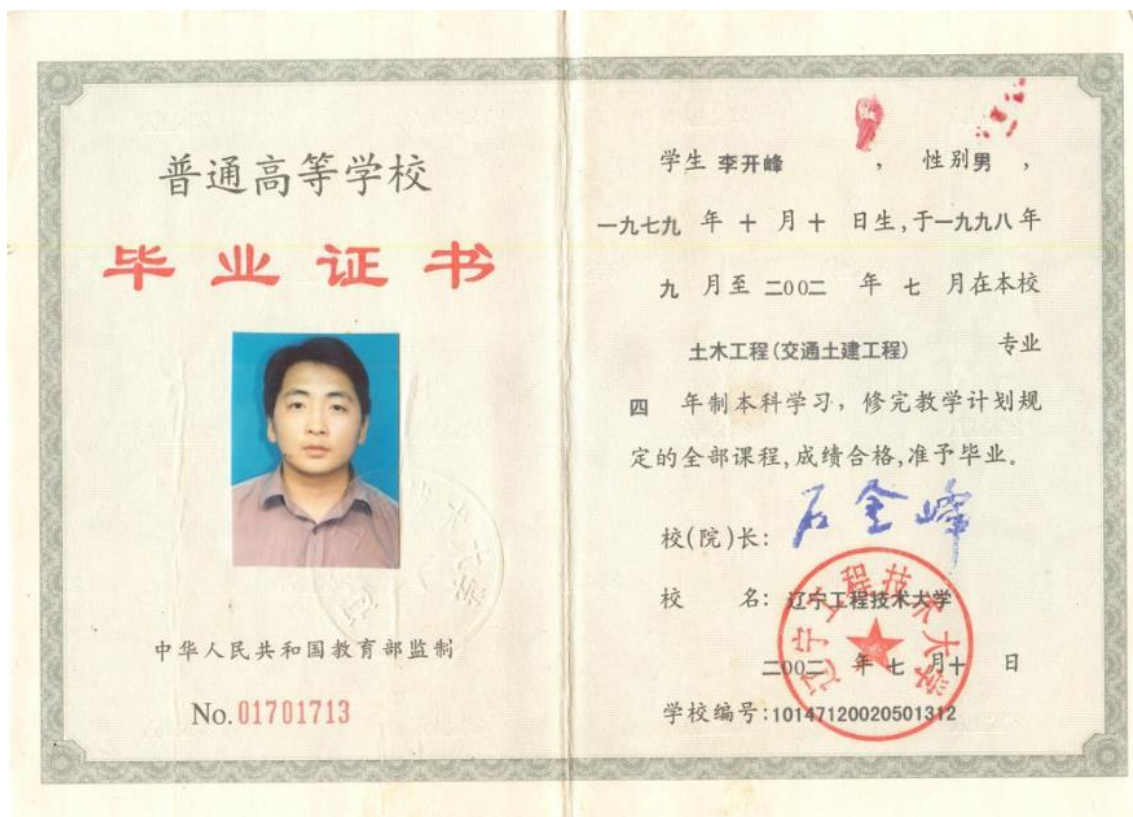 普通高等学校
毕业证书
中华人民共和国教育部监制
No.01701713
学生 李开峰 , 性别男 ,
一九七九 年 十 月 十 日生,于一九九八年
九 月至 二00二 年 七 月在本校
土木工程(交通土建工程) 专业
四 年制本科学习, 修完教学计划规
定的全部课程,成绩合格,准予毕业。
校(院)长: 石金峰
校 名: 辽宁工程技术大学
辽宁工程技术大学
二00二 年 七 月十 日
学校编号:10147120020501312